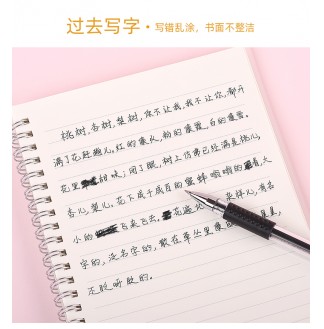 过去写字·写错乱涂，书面不整洁
桃树，杏树，梨树，你不让我，我不让你，都开
满了花赶趟儿，红的像火，粉的像霞，白的像雪。
花里 甜味；闭了眼，树上仿佛已经满是桃儿，
杏儿，梨儿，花下成千成百的蜜蜂嗡嗡的 着大
小的 飞来飞去， 花遍地 ，杂样儿，有名
字的，没名字的，散在草丛里像 星星，
还眨呀眨的。